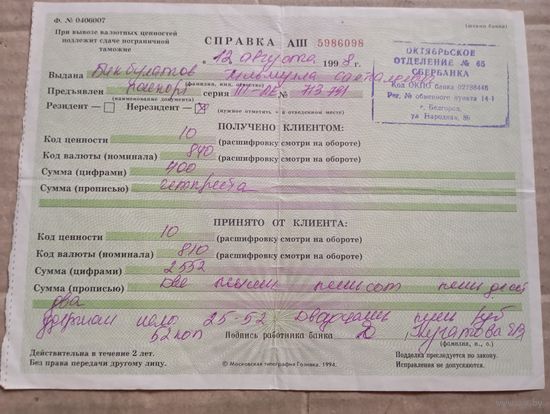 Ф. № 0406007
(штамп банка)
При вывозе валютных ценностей
подлежит сдаче пограничной
таможне
СПРАВКА АШ 5986098
" 12 августа 1998 г.
ОКТЯБРЬСКОЕ
ОТДЕЛЕНИЕ № 65
СБЕРБАНКА
Код ОКПО банка 02788446
Рег. № обменного пункта 14-1
г. Белгород,
ул Народная, 86
Выдана
(фамилия, имя, отчество)
Предъявлен паспорт серия № 713791
(наименование документа)
Резидент — Нерезидент —
(нужное отметить × в отведенном месте)
ПОЛУЧЕНО КЛИЕНТОМ:
Код ценности 10 (расшифровку смотри на обороте)
Код валюты (номинала) 840 (расшифровку смотри на обороте)
Сумма (цифрами) 400
Сумма (прописью) четыреста
ПРИНЯТО ОТ КЛИЕНТА:
Код ценности 10 (расшифровку смотри на обороте)
Код валюты (номинала) 810 (расшифровку смотри на обороте)
Сумма (цифрами) 2552
Сумма (прописью) Две тысячи пятьсот пятьдесят
два
25-52 Двадцать пять руб
52 коп Подпись работника банка
(фамилия, и., о.)
Действительна в течение 2 лет.
Без права передачи другому лицу.
© Московская типография Гознака. 1994.
Подделка преследуется по закону.
Исправления не допускаются.